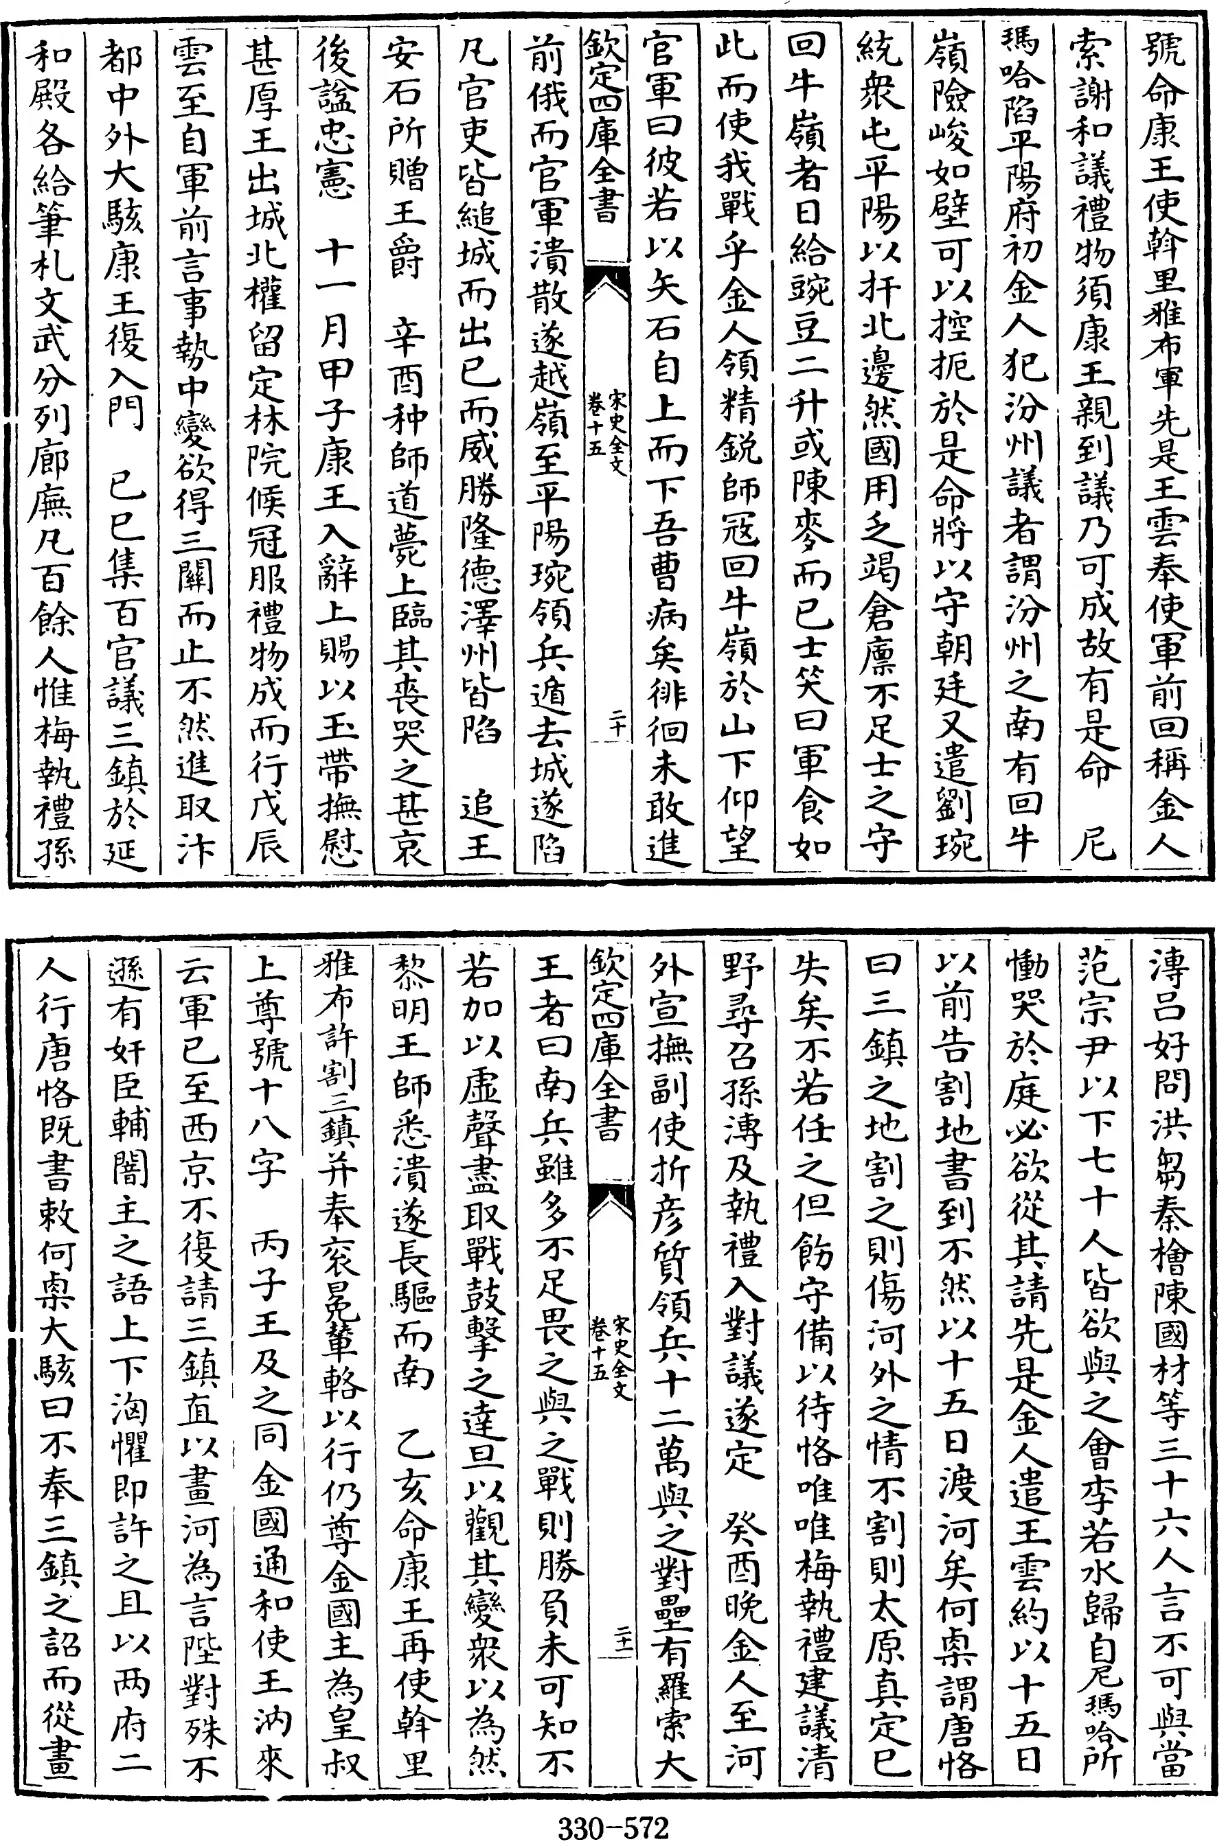 號命康王使斡里雅布軍先是王雲奉使軍前回稱金人
索謝和議禮物須康王親到議乃可成故有是命　尼
瑪哈陷平陽府初金人犯汾州議者謂汾州之南有回牛
嶺險峻如壁可以控扼於是命將以守朝廷又遣劉琬
統衆屯平陽以扞北邊然國用乏竭倉廪不足士之守
回牛嶺者日給豌豆二升或陳麥而已士笑曰軍食如
此而使我戰乎金人領精鋭師冦回牛嶺於山下仰望
官軍曰彼若以矢石自上而下吾曹病矣徘徊未敢進
欽定四庫全書
宋史全文
卷十五
二十
前俄而官軍潰散遂越嶺至平陽琬領兵遁去城遂陷
凡官吏皆縋城而出已而威勝隆德澤州皆陷　追王
安石所贈王爵　辛酉种師道薨上臨其喪哭之甚哀
後諡忠憲　十一月甲子康王入辭上賜以玉帶撫慰
甚厚王出城北權留定林院候冠服禮物成而行戊辰
雲至自軍前言事勢中變欲得三關而止不然進取汴
都中外大駭康王復入門　已巳集百官議三鎮於延
和殿各給筆札文武分列廊廡凡百餘人惟梅執禮孫
溥吕好問洪芻秦檜陳國材等三十六人言不可與當
范宗尹以下七十人皆欲與之會李若水歸自尼瑪哈所
慟哭於庭必欲從其請先是金人遣王雲約以十五日
以前告割地書到不然以十五日渡河矣何㮚謂唐恪
曰三鎮之地割之則傷河外之情不割則太原真定已
失矣不若任之但飭守備以待恪唯唯梅執禮建議清
野尋召孫溥及執禮入對議遂定　癸酉晚金人至河
外宣撫副使折彦質領兵十二萬與之對壘有羅索大
欽定四庫全書
宋史全文
卷十五
二十一
王者曰南兵雖多不足畏之與之戰則勝負未可知不
若加以虚聲盡取戰鼓擊之達旦以觀其變衆以為然
黎明王師悉潰遂長驅而南　乙亥命康王再使斡里
雅布許割三鎮并奉衮冕輦輅以行仍尊金國主為皇叔
上尊號十八字　丙子王及之同金國通和使王汭來
云軍已至西京不復請三鎮直以畫河為言陛對殊不
遜有奸臣輔闇主之語上下洶懼即許之且以两府二
人行唐恪既書敕何㮚大駭曰不奉三鎮之詔而從畫
330-572